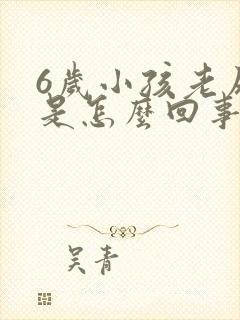 6歲小孩老
是怎麼回事
吳青